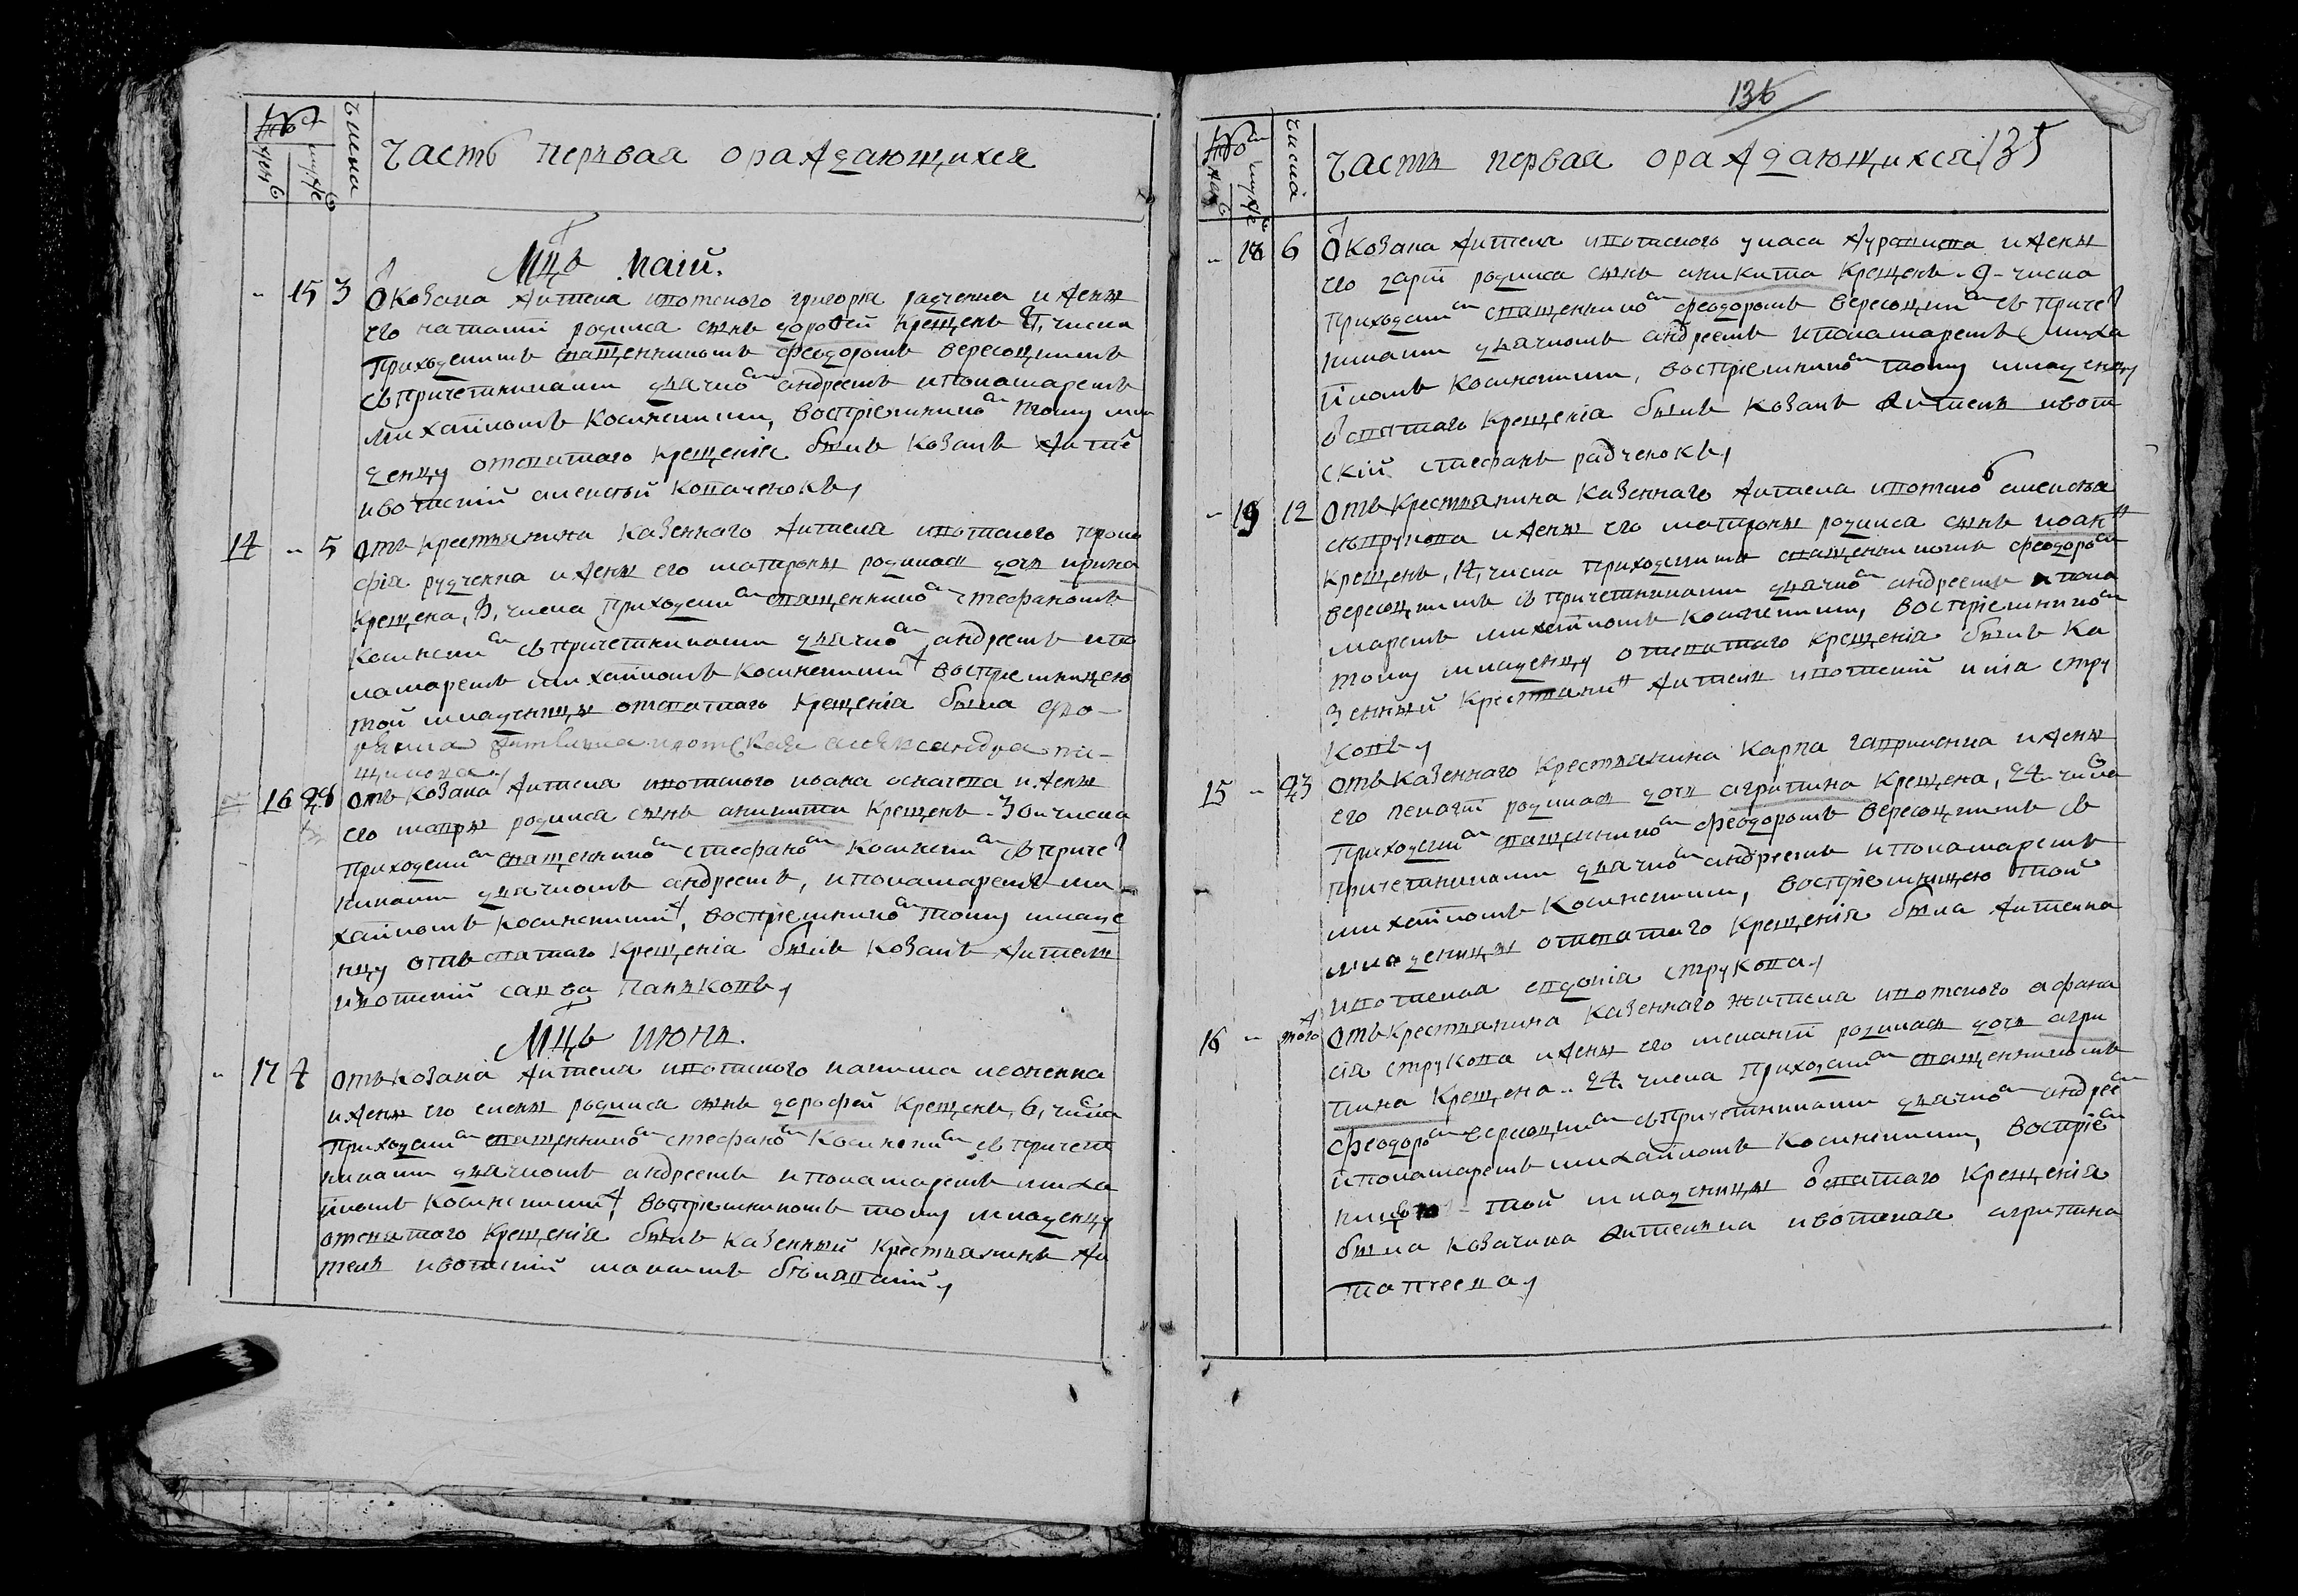 Часть первая ораждающихся
Мцъ маій.
15 3 Ѿ козака жителя ивотского григорія радченка и жены
его наталіи родился сынъ дорофей крещенъ числа
Приходскимъ священникомъ феодоромъ вересоцкимъ
съ причетниками дьячкомъ андреемъ и пономаремъ
михайломъ косинскими, воспріемникомъ тому мла
денцу отсвятаго крещенія былъ козакъ жите
ивотскій алексѣй копаченокъ,
14 - 5 Отъ крестьянина казенного жителя ивотского трофи
рудченка и жены его матроны родилась дочь ирина
крещена, числа Приходским священником стефаномъ
косинским съ причетниками дьячком андреемъ и по
намаремъ михайломъ косинскими воспріемницею
той младеницы отсвятаго крещенія была дво
ивотская александра
16 28 Отъ козака жителя ивотского ивана и жены
его марьи родился сынъ аникита крещенъ - 30 - числа
Приходским священником стефаном косинским съ приче
никами дьячкомъ андреемъ, и пономаремъ ми
хайломъ косинскими, воспріемником тому младе
нцу отъ святаго крещенія былъ козакъ житель
ивотскій савва Панковъ,
Мцъ июнь.
17 4 Отъ козака жителя ивотского
и жены его елены родился сынъ дорофей крещенъ, 6, числа
Приходским священником стефаном косинским съ причет
никами дьячкомъ андреемъ и пономаремъ миха
йломъ косинскими, воспріемникомъ тому младенцу
отсвятаго крещенія былъ казенный крестьянинъ жи
тель ивотскій максимъ
136
Часть первая ораждающихся 135
18 6 Ѿ козака жителя ивотского и жены
его даріи родился сынъ аникита крещенъ - 9 - числа
Приходским священником феодоромъ вересоцким съ приче
никами дьячкомъ андреемъ и пономаремъ миха
йломъ косинскими, воспріемником тому младенцу
Ѿ святаго крещенія былъ козакъ житель ивот
скій стефанъ радченокъ,
19 12 Отъ крестьянина казеннаго жителя ивотского алексѣя
струкова и жены его матроны родился сынъ иоан
крещенъ, 14, числа приходскимъ священникомъ феодором
вересоцкимъ съ причетниками дьячком андреемъ и поно
маремъ михайломъ косинскими, воспріемником
тому младенцу отсвятаго крещенія былъ ка
зенный крестьянин житель ивотскій илія стру
ковъ,
15 - 23 Отъ казеннаго крестьянина карпа гапри и жены
его пелагіи родилась дочь агрипина крещена, 24 числа
Приходским священником феодоромъ вересоцкимъ съ
причетниками дьячком андреемъ и пономаремъ
михайломъ косинскими, воспріемницею той
младеницы отсвятаго крещенія была жителка
ивотская евдокія струкова,
16 - того Отъ крестьянина казеннаго жителя ивотского афана
сія струкова и жены его меланіи родилась дочь агри
пина крещена - 24 числа Приходским священникомъ
феодором вересоцким съ причетниками дьячком андрее
и пономаремъ михайломъ косинскими, воспріем
ницею той младеницы Ѿ святаго крещенія
была козачка жителка ивотская агрипина